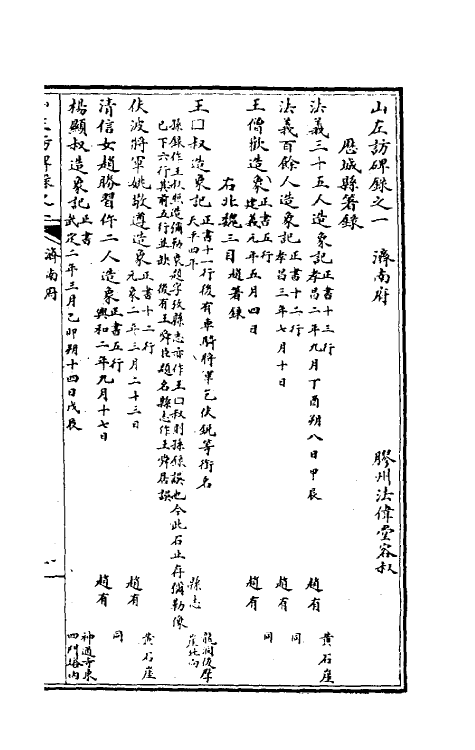 山左訪碑錄之一 濟南府 膠州法偉堂容叔
歷城縣著錄
法義三十五人造象記 正書十三行 孝昌二年九月丁酉朔八日甲辰 趙有 黃石崖
法義百餘人造象記 正書十二行 孝昌三年七月十日 趙有 同
王僧歡造象 正書五行 建義元年五月四日 趙有 同
右北魏三目趙著錄
王囗叔造象記 正書十一行後有車騎將軍乞伏銳等銜名 天平四年 縣志 龍洞後壁崖北向
孫錄作王叔照造彌勒象題字攷縣志亦作王囗叔則孫錄誤也今此石止存彌勒像
已下六行其前五行並缺 後有王舜臣題名縣志作王舜居誤
伏波將軍姚敬遵造象 正書十二行 元象二年三月二十三日 趙有 黃石崖
清信女趙勝習仵二人造象 正書五行 興和二年九月十七日 趙有 同
楊顯叔造象記 正書 武定二年三月乙卯朔十四日戊辰 神通寺東四門塔內
濟南府